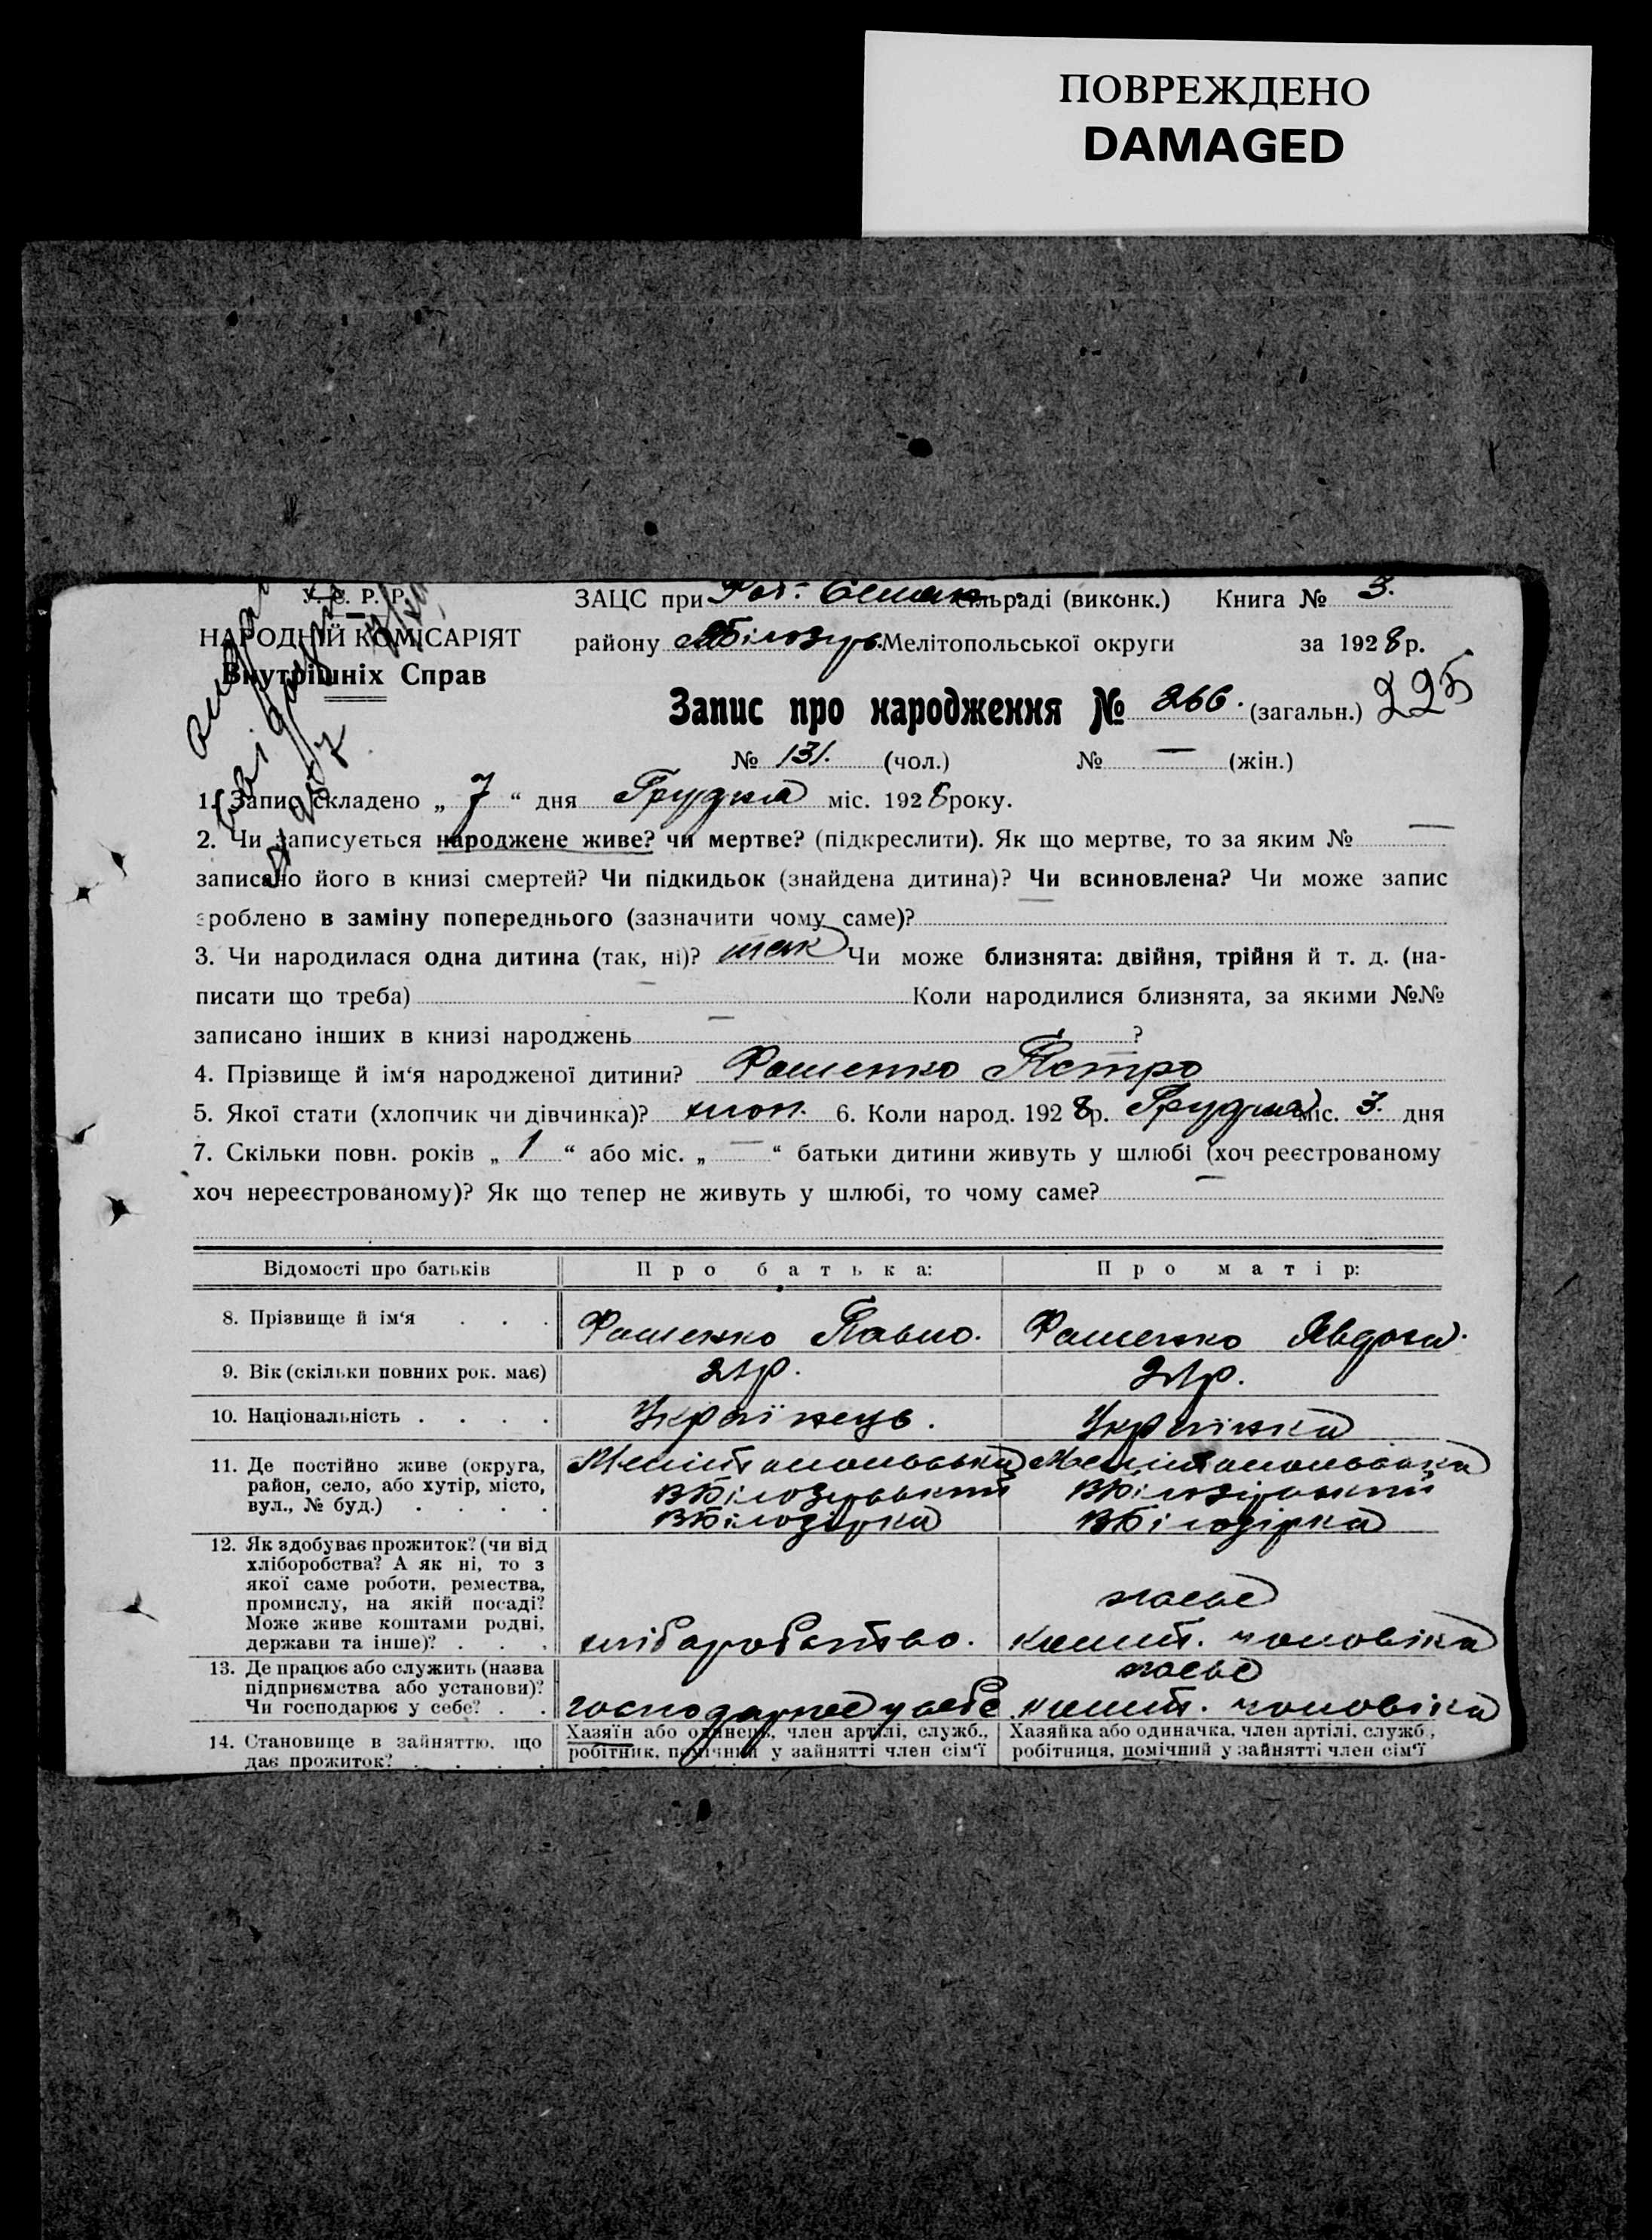 ПОВРЕЖДЕНО
DAMAGED
У. С. Р. Р.
НАРОДНІЙ КОМІСАРІЯТ
Внутрішніх Справ
ЗАЦС при сільраді (виконк.) Книга № 3.
району Мелітопольської округи за 1928 р.
Запис про народження № 266. (загальн.) 225
№ 131. (чол.) № — (жін.)
1. Запис складено „ 7 “ дня Грудня міс. 1928 року.
2. Чи записується народжене живе? чи мертве? (підкреслити). Як що мертве, то за яким № —
записано його в книзі смертей? Чи підкидьок (знайдена дитина)? Чи всиновлена? Чи може запис
зроблено в заміну попереднього (зазначити чому саме)? —
3. Чи народилася одна дитина (так, ні)? так Чи може близнята: двійня, трійня й т. д. (на-
писати що треба) — Коли народилися близнята, за якими №№
записано інших в книзі народжень — ?
4. Прізвище й ім‘я народженої дитини? Фошенко Петро
5. Якої стати (хлопчик чи дівчинка)? хлоп. 6. Коли народ. 1928 р. Грудня міс. 3. дня
7. Скільки повн. років „ 1 “ або міс. „ — “ батьки дитини живуть у шлюбі (хоч реєстрованому
хоч нереєстрованому)? Як що тепер не живуть у шлюбі, то чому саме? —
Відомості про батьків Про батька: Про матір:
8. Прізвище й ім‘я . . . Фошенко Павло. Фошенко Явдоха.
9. Вік (скільки повних рок. має) 21р. 21р.
10. Національність . . . . Українець. Українка
11. Де постійно живе (округа, Мелітопольська Мелітопольська
район, село, або хутір, місто, ВБілозірський ВБілозірський
вул., № буд.) . . . . ВБілозірка ВБілозірка
12. Як здобуває прожиток? (чи від
хліборобства? А як ні, то з
якої саме роботи, ремества,
промислу, на якій посаді?
Може живе коштами родні,
держави та інше)? . . . хліборобство. кошт. чоловіка
13. Де працює або служить (назва
підприємства або установи)?
Чи господарює у себе? . . господарює у себе кошт. чоловіка
14. Становище в зайняттю, що Хазяїн або одинець, член артілі, служб., Хазяйка або одиначка, член артілі, служб.,
дає прожиток? . . . . робітник, помічний у зайнятті член сім‘ї робітниця, помічний у зайнятті член сім‘ї